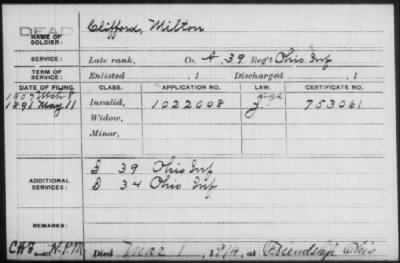 DEAD
NAME OF SOLDIER: Clifford, Milton
SERVICE: Late rank, Co. A, 39 Reg't Ohio Inf
TERM OF SERVICE: Enlisted , 1 Discharged , 1
DATE OF FILING. CLASS. APPLICATION NO. LAW. CERTIFICATE NO.
1907 Mch 8
1891 May 11 Invalid, 1022008 753061
Widow,
Minor,
ADDITIONAL SERVICES: E 39 Ohio Inf
D 34 Ohio Inf
REMARKS:
N.P.M. Died Mar 1, 1914, at Friendship Ohio